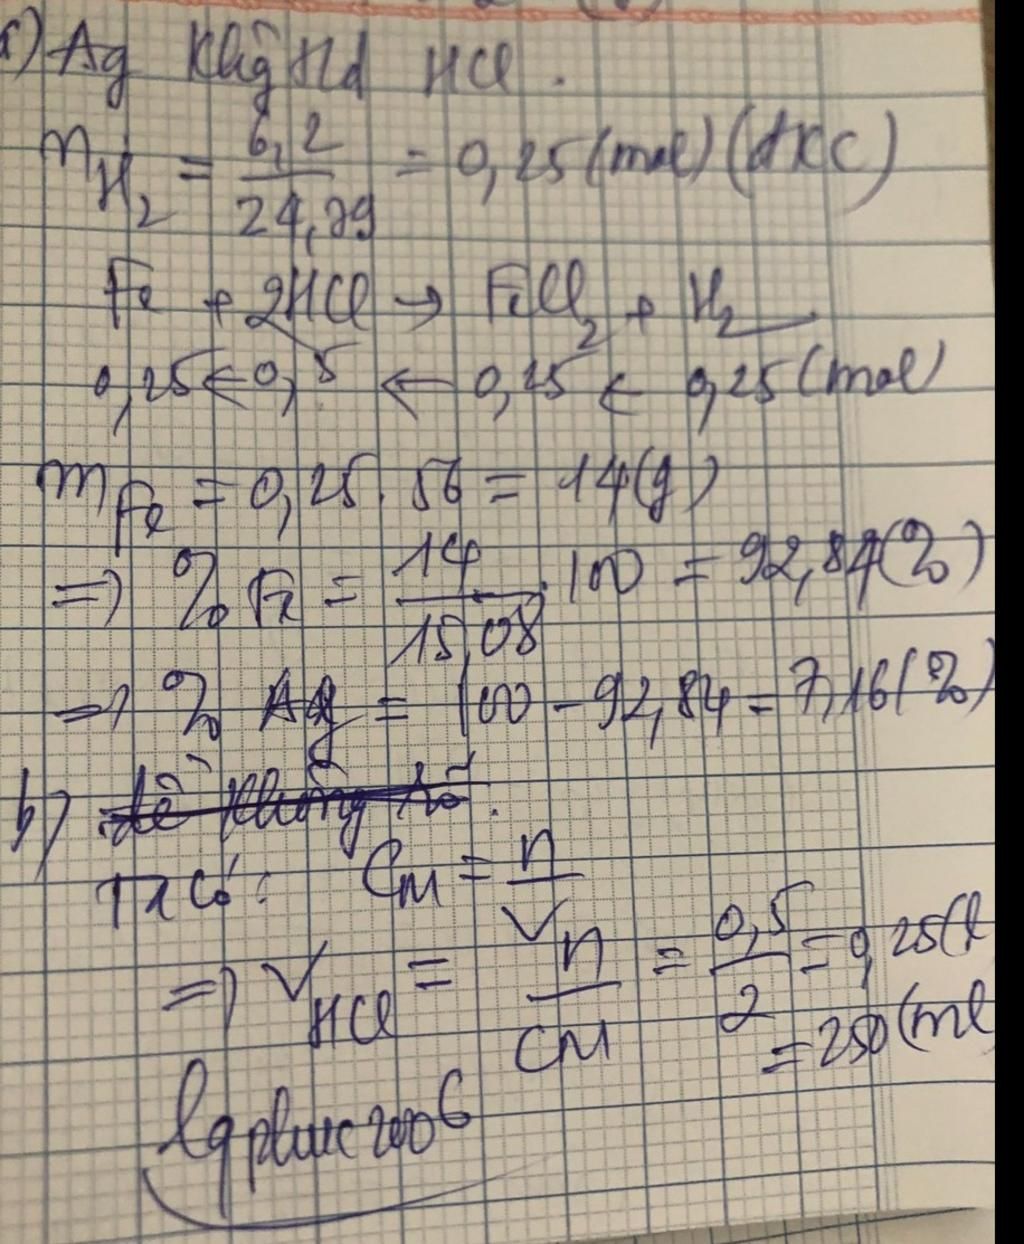 a) Ag khg td HCl.
n H₂ = 6,2/24,79 = 0,25 (mol) (đkc)
Fe + 2HCl → FeCl₂ + H₂
0,25 ← 0,5 ← 0,25 ← 0,25 (mol)
m Fe = 0,25.56 = 14(g)
=> % Fe = 14/15,08 . 100 = 92,84(%)
=> % Ag = 100 - 92,84 = 7,16(%)
b) đề không rõ.
Ta có: CM = n/V
=> V HCl = n/CM = 0,5/2 = 0,25(l
= 250(ml
lgphuc2006